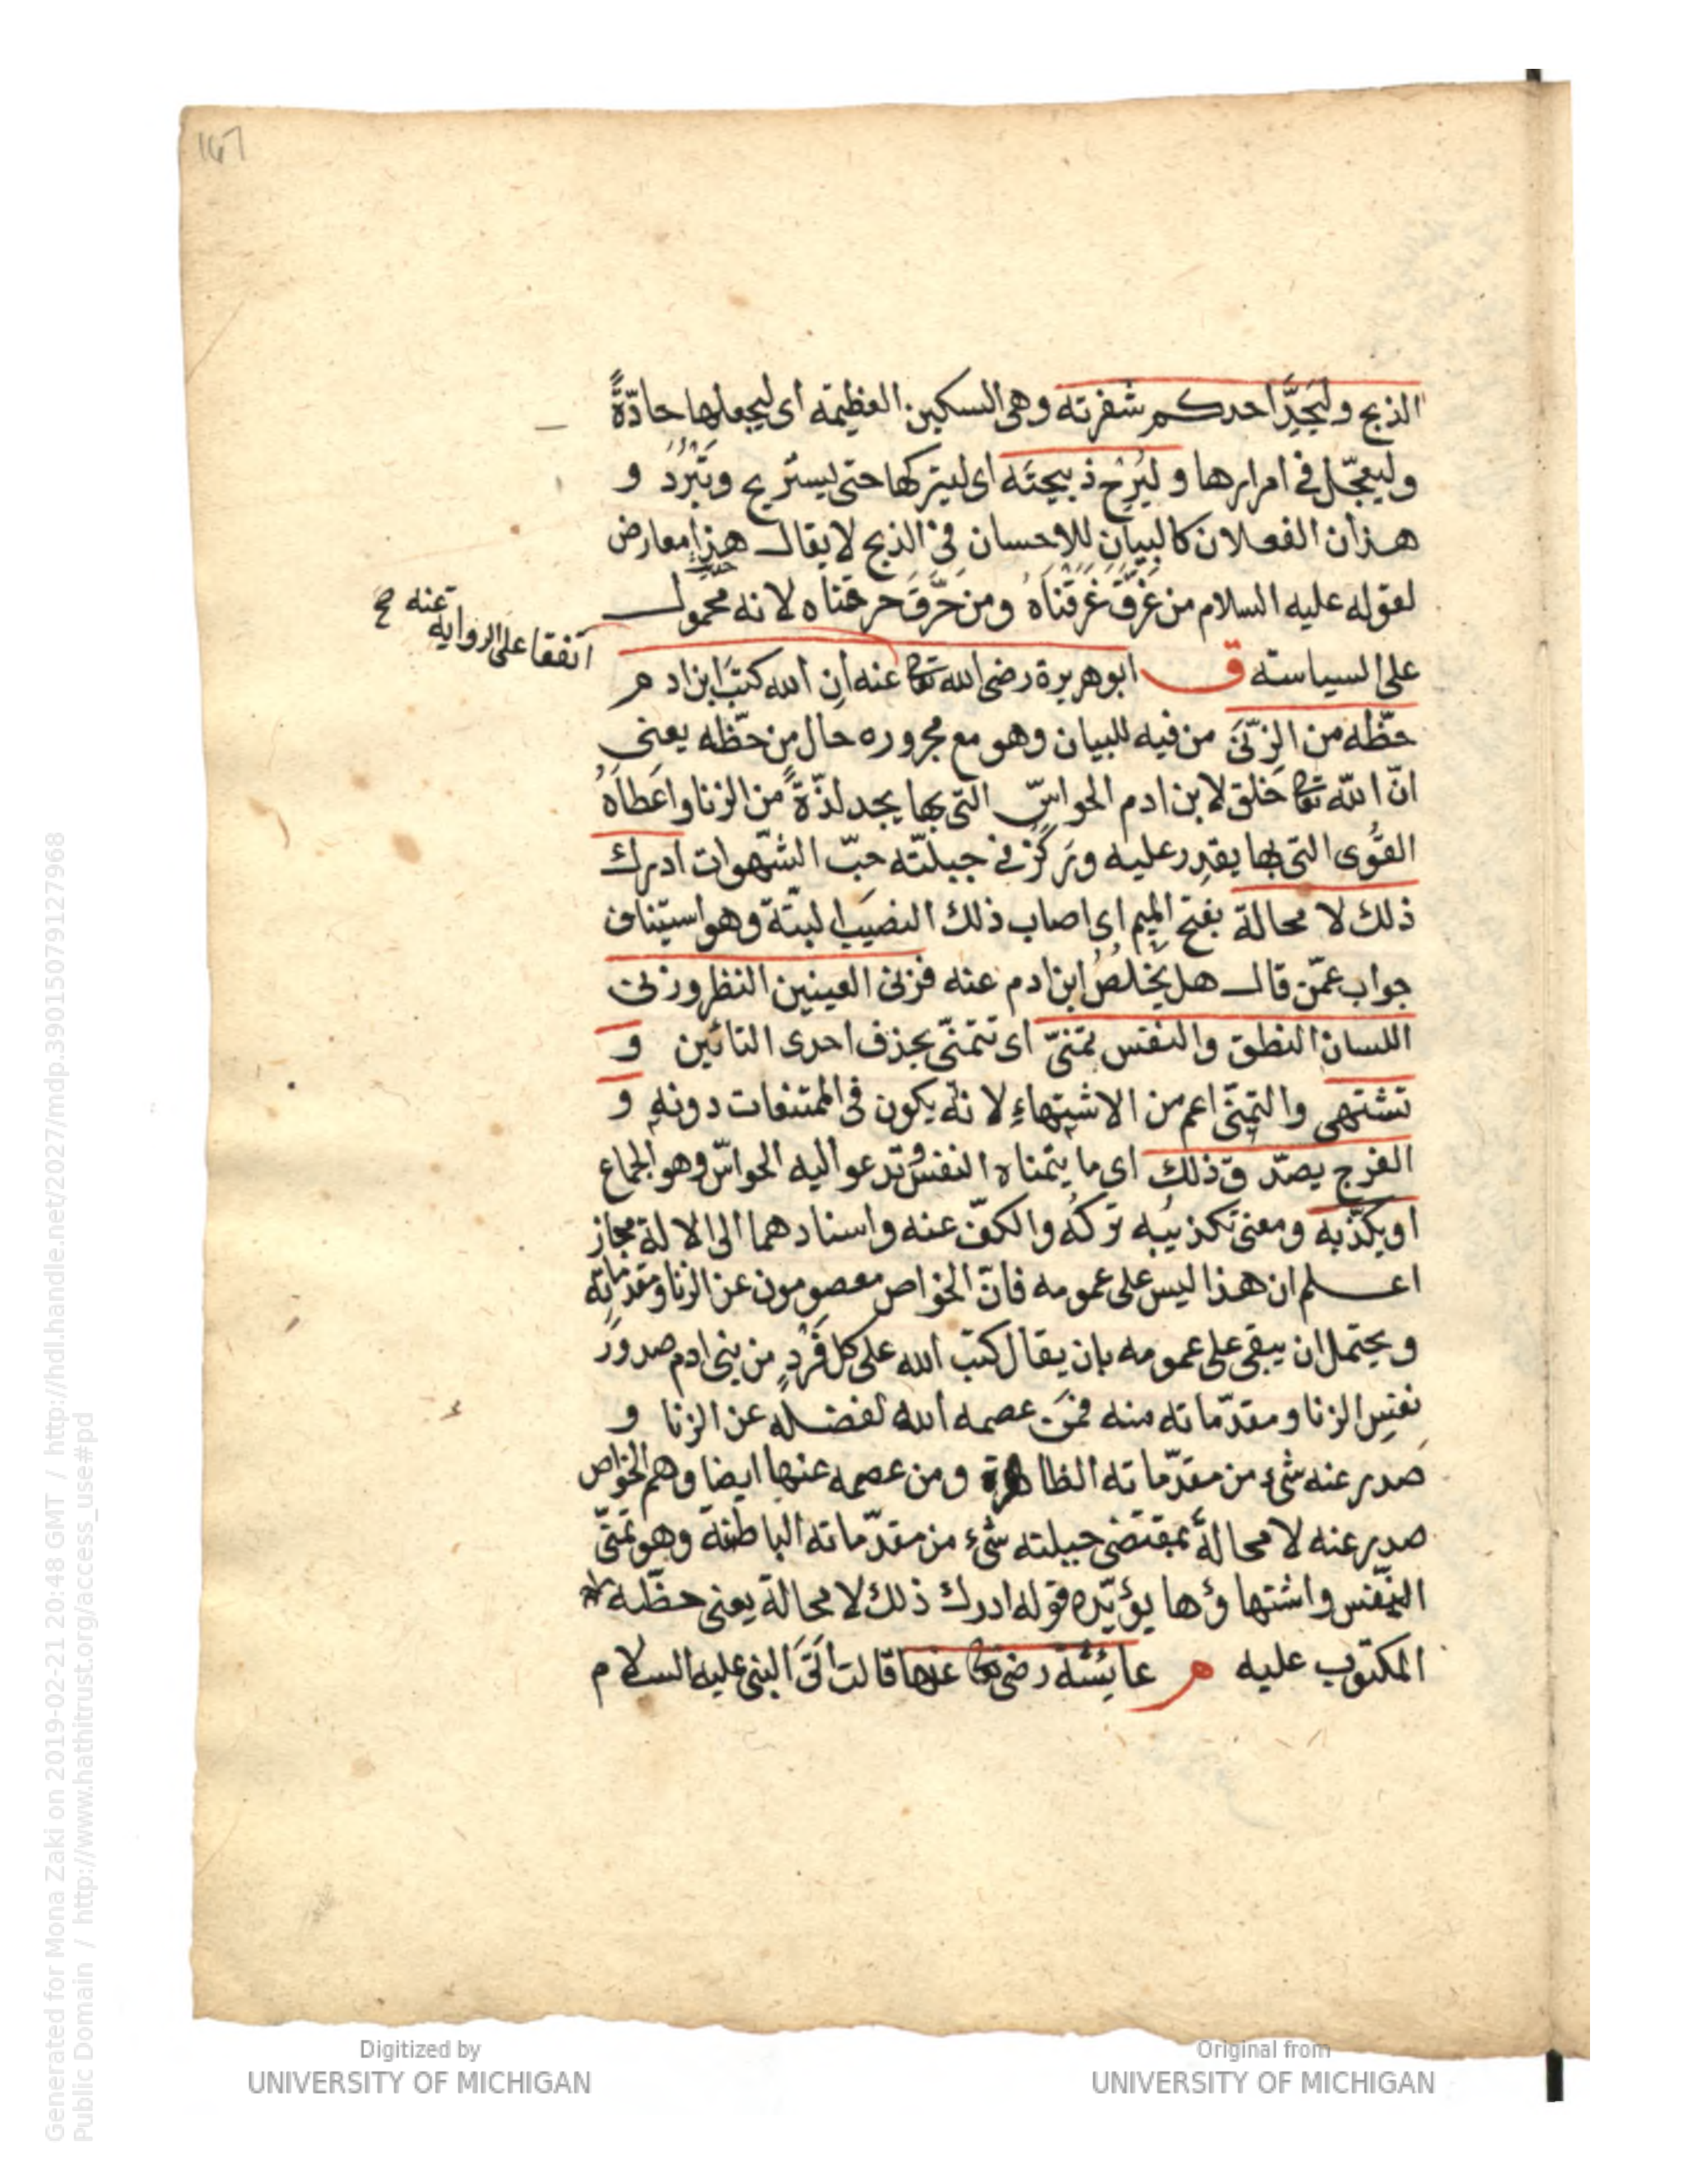 167
الذبح وليُحِدَّ احدكم شفرته وهى السكين العظيمة اى ليجعلها حادّةً
وليعجّل فى امرارها و ليُرِحْ ذبيحته اى ليتركها حتى يستريح وتَبْرُدَ و
هذان الفعلان كالبيان للاحسان فى الذبح لا يقال هذا معارض
لقوله عليه السلام من غَرَّقَ غَرقناهُ ومن حَرَّقَ حرقناه لانه محمول
على السياسة ق ابوهريرة رضى الله تعا عنه ان الله كتب ابن ادم
اتفقا على الرواية عنه صح
حظّه من الزنى من فيه للبيان وهو مع مجروره حال من حظّه يعنى
انّ الله تعا خلق لابن ادم الحواسّ التى بها يجد لذّةً من الزنا واعطاهُ
القُوى التى بها يقدر عليه وركز فى جبلّته حبّ الشهوات ادرك
ذلك لا محالة بفتح الميم اى اصاب ذلك النصيب البتّة وهو استيناف
جواب عمّن قال هل يَخْلُصُ ابن ادم عنه فزنى العينين النظر وزنى
اللسان النطق والنفس تمنّى اى تتمنّى بحذف احدى التائين و
تشتهى والتمنّى اعم من الاشتهاءِ لانه يكون فى الممتنعات دونه و
الفرج يصدّق ذلك اى ما يتمناه النفس وتدعوا اليه الحواسّ وهو الجماع
او يكذّبه ومعنى تكذيبه تركُه والكفّ عنه واسنادهما الى الالة مجاز
اعلم ان هذا ليس على عمومه فانّ الخواص معصومون عن الزنا ومقدّماته
ويحتمل ان يبقى على عمومه بان يقال كتب الله على كل فَرْدٍ من بنى ادم صدورَ
نفسِ الزنا ومقدّماته منه فمن عصمه الله لفضله عن الزنا و
صدر عنه شىء من مقدّماته الظاهرة ومن عصمه عنها ايضا وهم الخواص
صدر عنه لا محالةَ بمقتضى جبلته شىء من مقدّماته الباطنة وهو تمنّى
النفس واشتهاؤها يؤيّده قوله ادرك ذلك لا محالة يعنى حظّه
المكتوب عليه م عايشة رضى تعا عنها قالت اَتَى النبى عليه السلام
Generated for Mona Zaki on 2019-02-21 20:48 GMT / http://hdl.handle.net/2027/mdp.39015079127968
Public Domain / http://www.hathitrust.org/access_use#pd
Digitized by
UNIVERSITY OF MICHIGAN
Original from
UNIVERSITY OF MICHIGAN